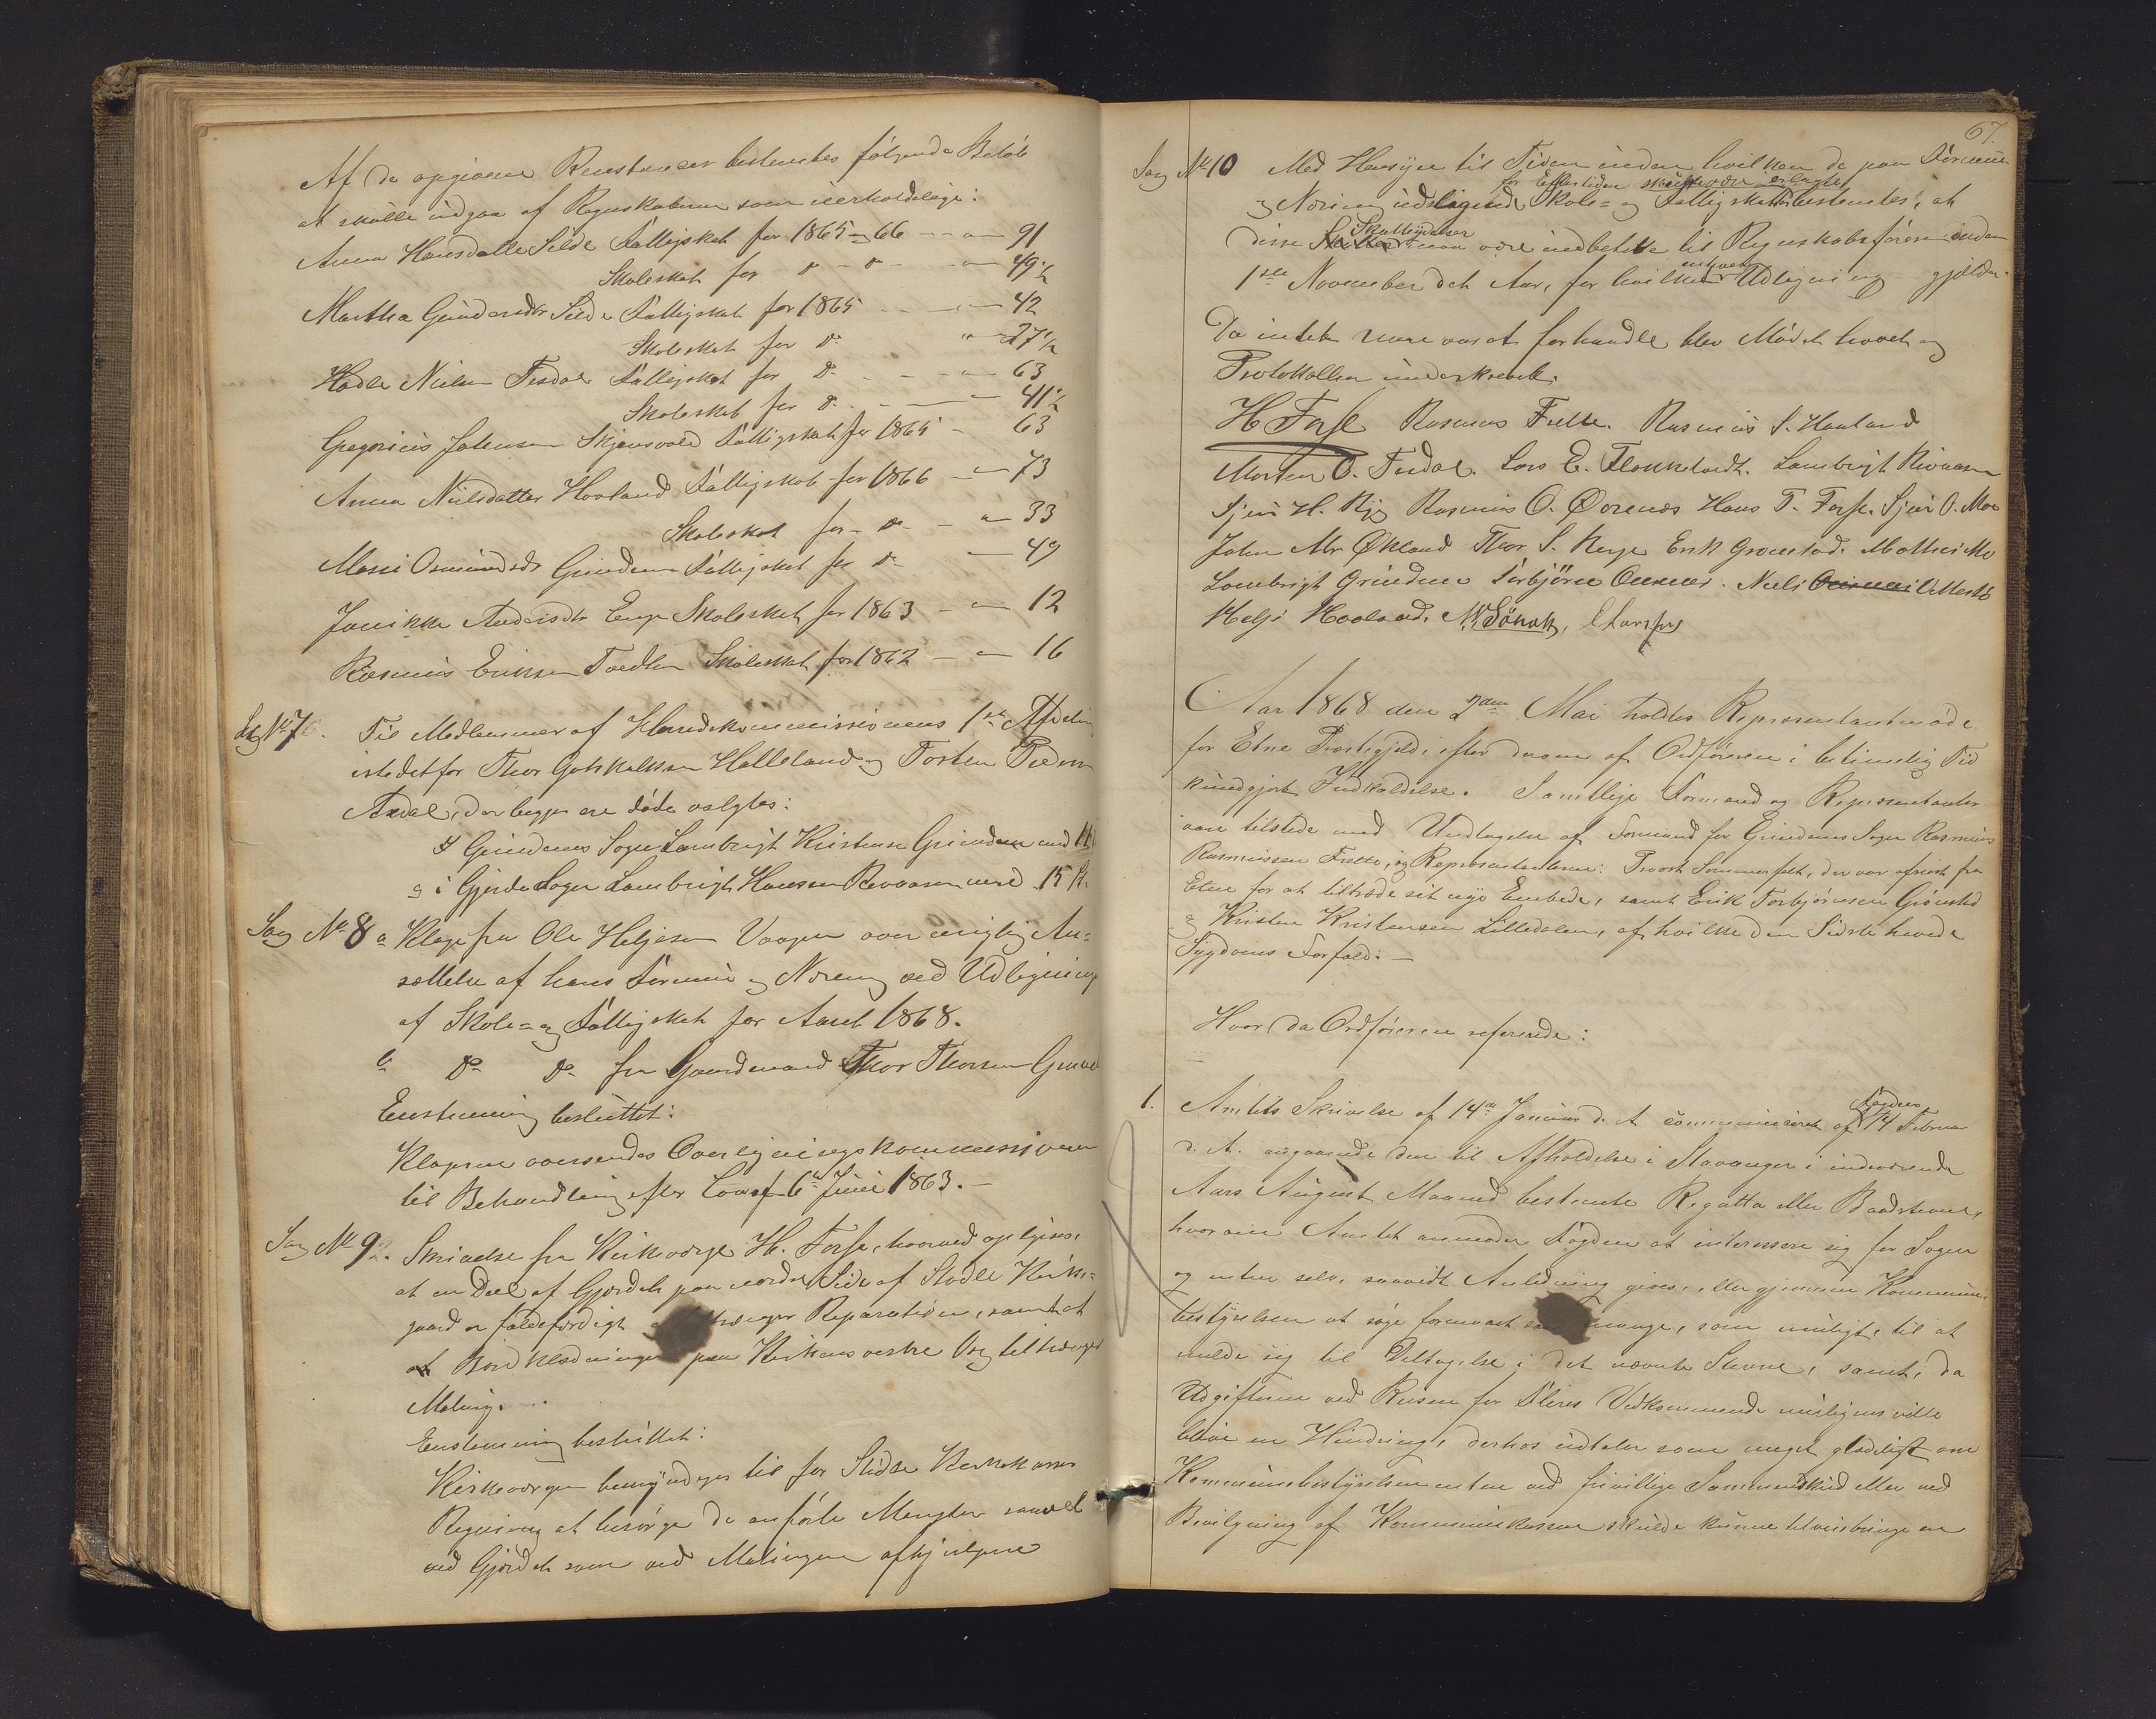 Af de opgivne Restancer bestemtes følgende Beløb
at skulle indgaa af Regnskaberne som uerholdelige:
Anna Hansdatter Silde Fattigskat for 1865 og 66 — " — 91
Skoleskat for d° – d° — " — 49½
Martha Gundersdtr Silde Fattigskat for 1865 — " — 42
Skoleskat for d° " — 27½
Hadle Nielsen Tesdal Fattigskat for d° — " — 63
Skoleskat for d° — " — 41½
Gregorius Johnsen Skjensvold Fattigskat for 1865 – 63
Anna Nielsdatter Hovland Fattigskat for 1866 — " — 73
Skoleskat for d° — " — 33
Mari Osmundsdr Grindem Fattigskat for d° — 49
Jannikke Andersdtr Enge Skoleskat for 1863 — " — 12
Rasmus Eriksen Tvedten Skoleskat for 1862 — " — 16
Sag No 7. Til Medlemmer af Herredskommissionens 1ste Afdeling
istedetfor Thor Gotskalksen Halleland og Torsten
Axdal, der begge ere døde valgtes:
I Grindems Sogn Lambrigt Kristensen Grindem med
og i Gjerde Sogn Lambrigt Hansen Revaasen med 15 St.
Sag No 8 a Klage fra Ole Heljesen Vaagen over urigtig An-
sættelse af hans Formue og Næring ved Udligning
af Skole- og Fattigskat for Aaret 1868.
b. d° d° fra Gaardmand Thor Thorsen
Enstemmig besluttet:
Klagerne oversendes Overligningskommissionen
til Behandling efter Lov af 6te Juni 1863. —
Sag No 9. Skrivelse fra Kirkeværge H. Fosse, hvorved oplyses,
at en Deel af Gjerdet paa nordre Side af Stødle Kirke-
gaard er faldefærdigt Reparation, samt at
at Bordklædningen paa Kirkens vestre Væg tiltrænger
Maling.
Enstemmig besluttet:
Kirkeværgen bemyndiges til for Stødle Kirkekasses
Regning at besørge de anførte Mangler saavel
ved Gjerdet som ved Malingen afhjulpne
67.
Sag No 10 Med Hensyn til Tiden inden hvilken de paa Formue
for Eftertiden skulle være erlagte
og Næring udlignede Skole- og Fattigskatter bestemtes, at
Skatteydelser
disse maa være indbetalte til Regnskabsføreren inden
enhver
1ste November det Aar, for hvilken Udligning gjælder.
Da intet mere var at forhandle blev Mødet hævet og
Protokollen underskrevet.
H Fosse Rasmus Frette. Rasmus S. Haaland
Morten O. Tesdal. Lars E. Lambrigt Rivaasen
Sjur H. Ryg Rasmus O. Øvrenes Hans T. Fosse. Sjur O. Moe
John Mr Økland Thor S. Berge Erik Grønstad. Mathis Mo
Lambrigt Grindem Torbjørn Niels
Helje Hovland. N. Sørvik,
Aar 1868 den 2den Mai holdtes Repræsentantmøde
for Etne Præstegjeld, efter den af Ordføreren i betimelig Tid
kundgjort Indkaldelse. Samtlige Formænd og Repræsentanter
vare tilstede med Undtagelse af Formand for Grindems Sogn Rasmus
Rasmussen Frette, og Repræsentanterne: Provst Sommerfelt, der var afreist fra
Etne for at tiltræde sit nye Embede, samt Erik Torbjørnsen Grønstad
og Kristen Kristensen Lilledalen, af hvilke den Sidste havde
Sygdoms Forfald. —
Hvor da Ordføreren refererede:
1. Amtets Skrivelse af 14de Januar d. A. communiceret af Fogden 14 Februar
d. A. angaaende den til Afholdelse i Stavanger i indeværende
Aars August Maaned bestemte Regatta eller Baadstevne,
hvorom Amtet anmoder Fogden at interessere sig for Sagen
og enten selv, saavidt Anledning gives, eller gjennem Kommune-
bestyrelsen at søge formaaet mange, som muligt, til at
melde sig til Deltagelse i det nævnte Stevne, samt, da
Udgifterne ved Reisen for Fleres Vedkommende muligens ville
blive en Hindring, derhos udtaler som meget glædeligt om
Kommunebestyrelsen enten ved frivillige Sammenskud eller ved
Bevilgning af Kommunekassen skulde kunne tilveiebringe en